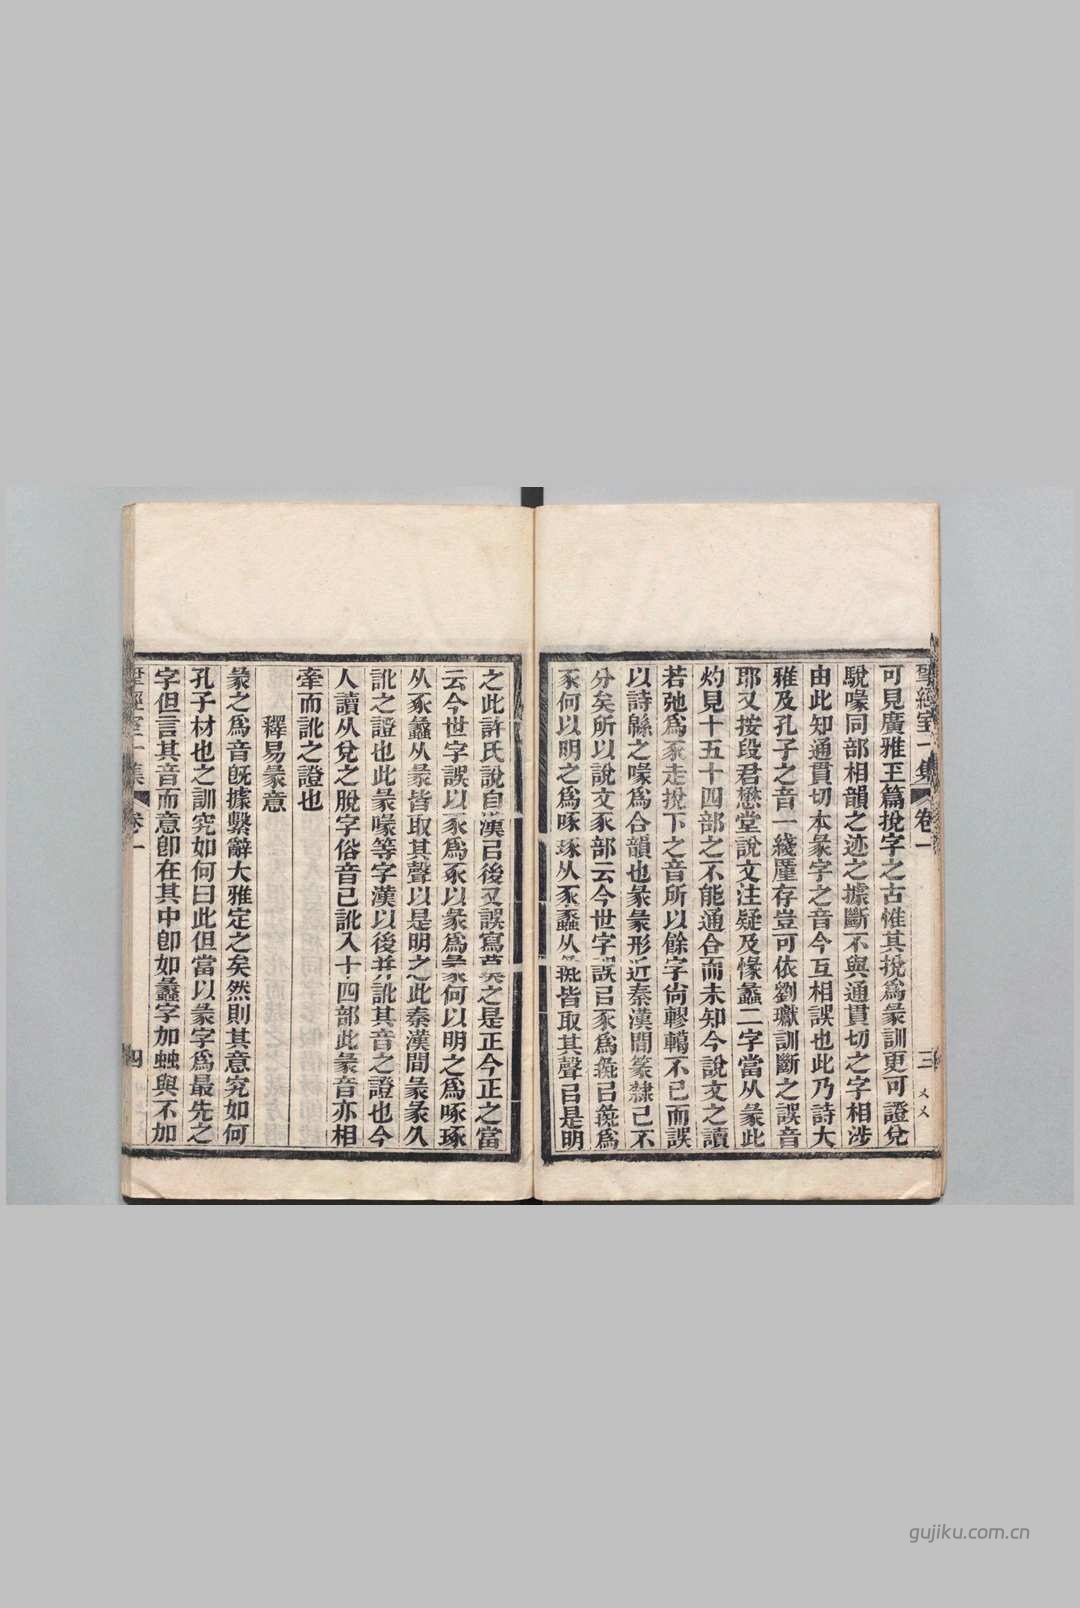 揅經室一集 卷一 三
可見廣雅玉篇挩字之古惟其挩爲彖訓更可證兌
駾喙同部相韻之迹之據斷不與通貫切之字相涉
由此知通貫切本彖字之音今互相誤也此乃詩大
雅及孔子之音一綫厪存豈可依劉瓛訓斷之誤音
耶又按段君懋堂說文注疑及㥟蠡二字當从彖此
灼見十五十四部之不能通合而未知今說文之讀
若弛爲豕走挩下之音所以餘字尙轇轕不已而誤
以詩緜之喙爲合韻也彖彖形近秦漢間篆隸已不
分矣所以說文豕部云今世字誤㠯豕爲㣇㠯㣇爲
豕何以明之爲啄琢从豕蠡从㣇皆取其聲㠯是明
之此許氏說自漢㠯後又誤寫莫之是正今正之當
云今世字誤以豕爲豖以彖爲彖何以明之爲啄琢
从豖蠡从彖皆取其聲以是明之此秦漢間彖豖久
訛之證也此彖喙等字漢以後并訛其音之證也今
人讀从兌之脫字俗音已訛入十四部此彖音亦相
牽而訛之證也
釋易彖意
彖之爲音旣據繫辭大雅定之矣然則其意究如何
孔子材也之訓究如何曰此但當以彖字爲最先之
字但言其音而意卽在其中卽如蠡字加䖵與不加
揅經室一集 卷一 四
gujiku.com.cn